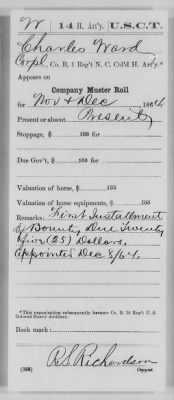 W | 14 H. Ar'y. | U.S.C.T.
Charles Ward
Corpl, Co. B, 1 Reg't N. C. Col'd H. Art'y.*
Appears on
Company Muster Roll
for Nov & Dec, 1864.
Present or absent Present
Stoppage, $ 100 for
Due Gov't, $ 100 for
Valuation of horse, $ 100
Valuation of horse equipments, $ 100
Remarks: First Installment
of Bounty Due Twenty
five (25) Dollars.
Appointed Dec 8/64.
*This organization subsequently became Co. B, 14 Reg't U. S.
Colored Heavy Artillery.
Book mark:
R S Richardson
(358) Copyist.